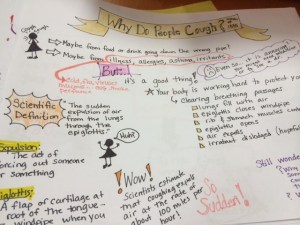 Why Do People Cough?
Cough Cough
Maybe from food or drink going down the wrong pipe?
Maybe from illness, allergies, asthma, irritants
But...!
It's a good thing!
Your body is working hard to protect you
Clearing breathing passages
lungs fill with air
epiglottis closes windpipe
epiglottis opens
air expels
irritant dislodged
Scientific Definition
"The sudden
expulsion of air
from the lungs
through the
epiglottis."
Huh?
Expulsion:
The act of
forcing out someone
or something
Epiglottis:
A flap of cartilage at
root of the tongue
windpipe when you
Wow!
Scientists estimate
that coughing expels
air at the rate of
about 100 miles per
hour!
So
Sudden!
Still wonder